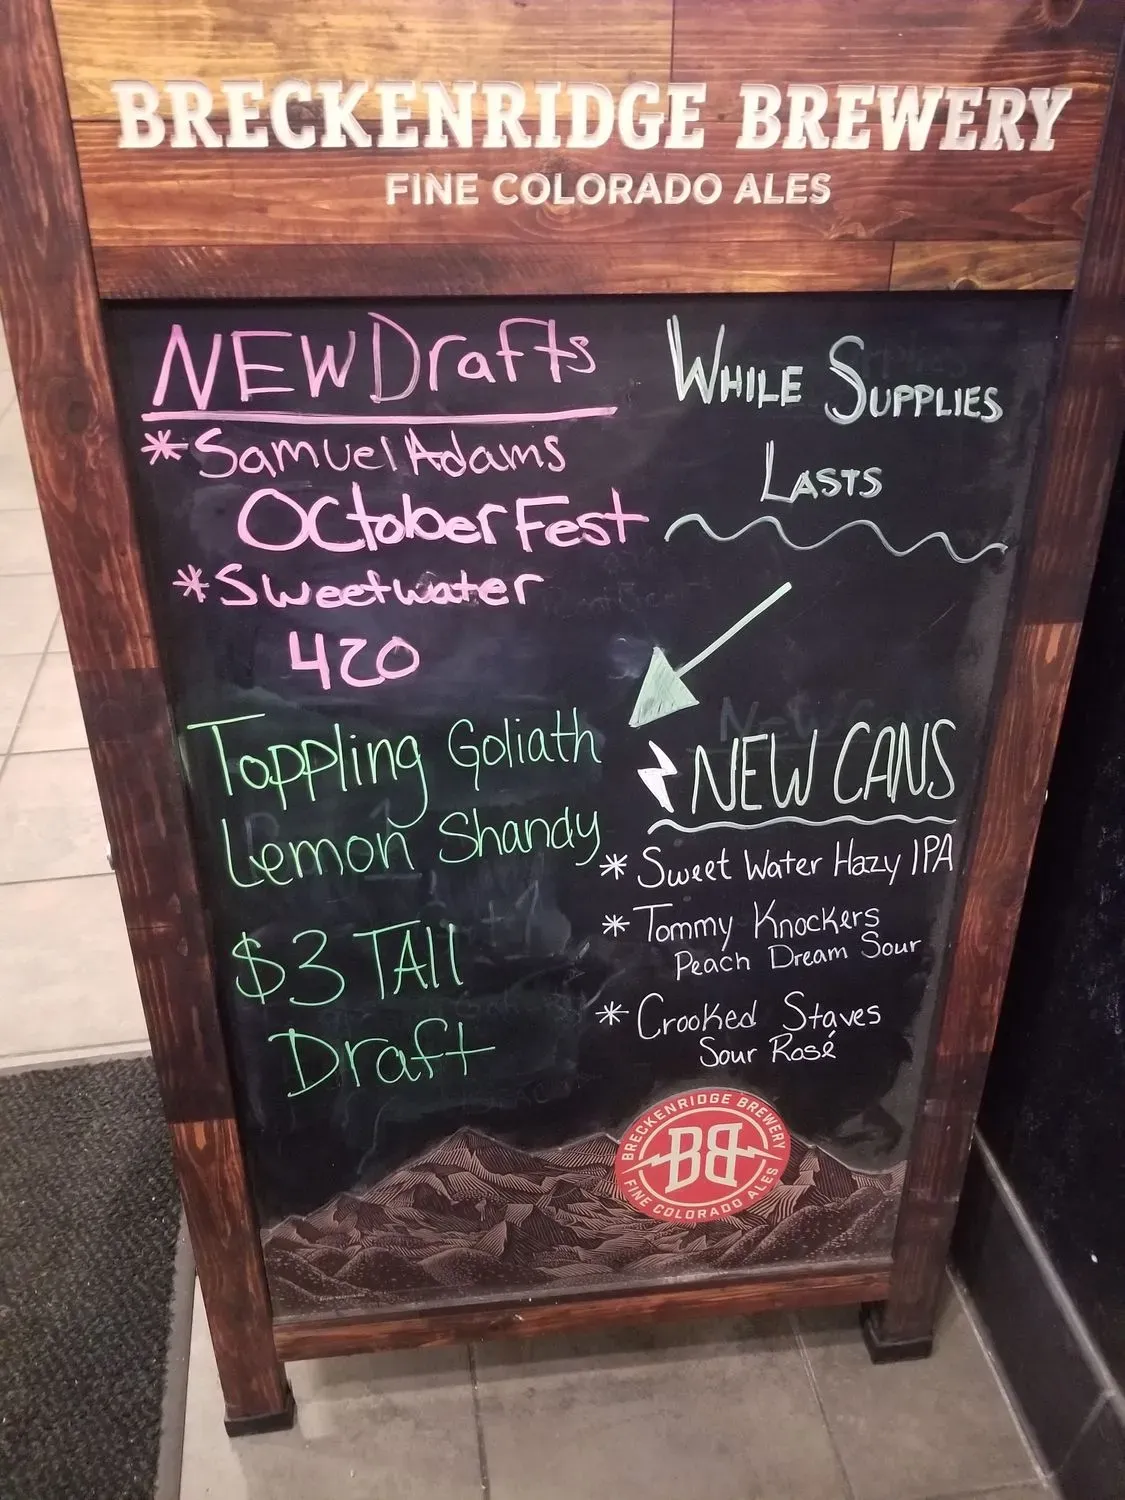 BRECKENRIDGE BREWERY
FINE COLORADO ALES
NEW Drafts
* Samuel Adams
OctoberFest
* Sweetwater
420
WHILE SUPPLIES
LASTS
Toppling Goliath
Lemon Shandy
$3 TAll
Draft
NEW CANS
* Sweet Water Hazy IPA
* Tommy Knockers
Peach Dream Sour
* Crooked Staves
Sour Rosé
BRECKENRIDGE BREWERY
BB
FINE COLORADO ALES